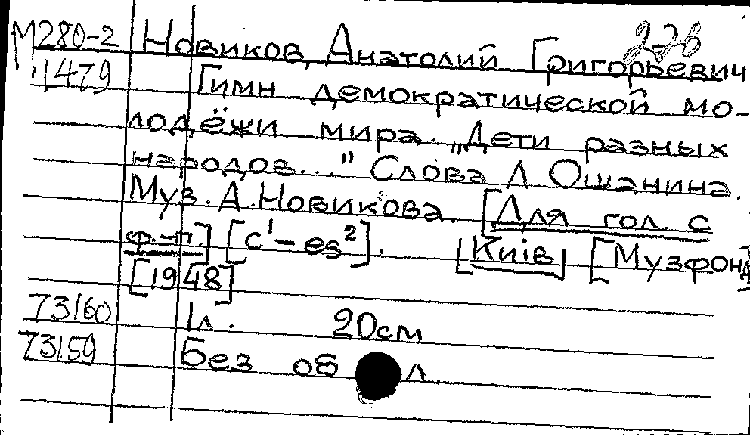 М280-2 Новиков, Анатолий Григорьевич
1479 Гимн демократической мо-
лодёжи мира. „Дети разных
народов..." Слова Л. Ошанина.
Муз. А. Новикова. [Для гол. с
ф.-п] [c¹-es²]. [Київ] [Музфонд]
[1948]
73160 1л. 20см
73159 Без об л.